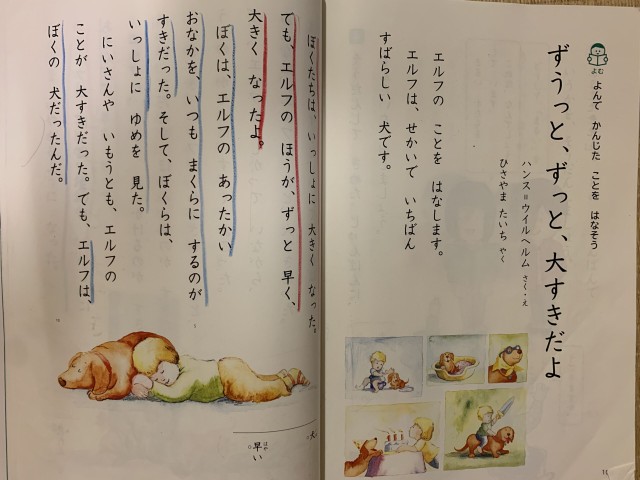 よむ
よんで かんじた ことを はなそう
ずうっと、ずっと、大すきだよ
ハンス＝ウイルヘルム さく・え
ひさやま たいち やく
エルフの ことを はなします。
エルフは、せかいで いちばん
すばらしい 犬です。
ぼくたちは、いっしょに 大きく なった。
でも、エルフの ほうが、ずっと 早く、
大きく なったよ。
ぼくは、エルフの あったかい
おなかを、いつも まくらに するのが
すきだった。そして、ぼくらは、
いっしょに ゆめを 見た。
にいさんや いもうとも、エルフの
ことが 大すきだった。でも、エルフは、
ぼくの 犬だったんだ。
早い
はや